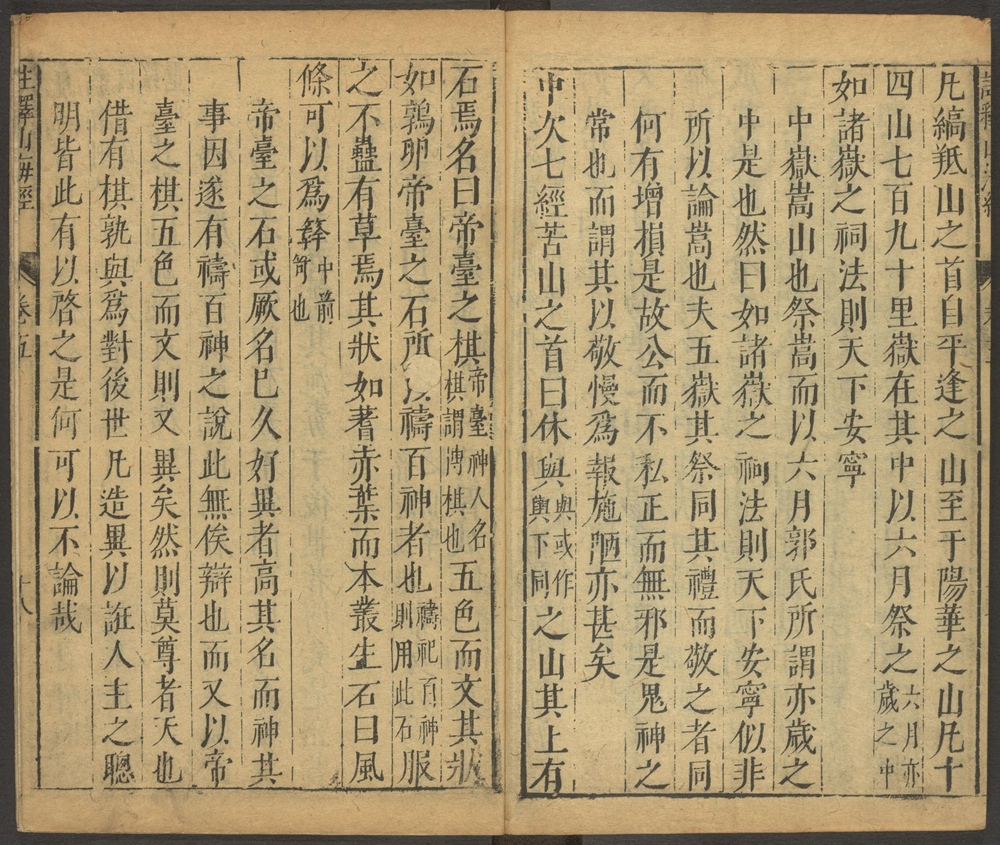 凡縞羝山之首自平逢之山至于陽華之山凡十
四山七百九十里嶽在其中以六月祭之六月亦歲之中
如諸嶽之祠法則天下安寧
中嶽嵩山也祭嵩而以六月郭氏所謂亦歲之
中是也然曰如諸嶽之祠法則天下安寧似非
所以論嵩也夫五嶽其祭同其禮而敬之者同
何有增損是故公而不私正而無邪是鬼神之
常也而謂其以敬慢為報施陋亦甚矣
中次七經苦山之首曰休與與或作輿下同之山其上有
石焉名曰帝臺之棋帝臺神人名棋謂博棋也五色而文其狀
如鶉卵帝臺之石所以禱百神者也禱祀百神則用此石服
之不蠱有草焉其狀如蓍赤葉而本叢生石曰風
條可以為簳中箭笴也
帝臺之石或厥名巳久好異者高其名而神其
事因遂有禱百神之說此無俟辯也而又以帝
臺之棋五色而文則又異矣然則莫尊者天也
借有棋孰與為對後世凡造異以誑人主之聰
明皆此有以啓之是何可以不論哉
註釋山海經 卷五 十八